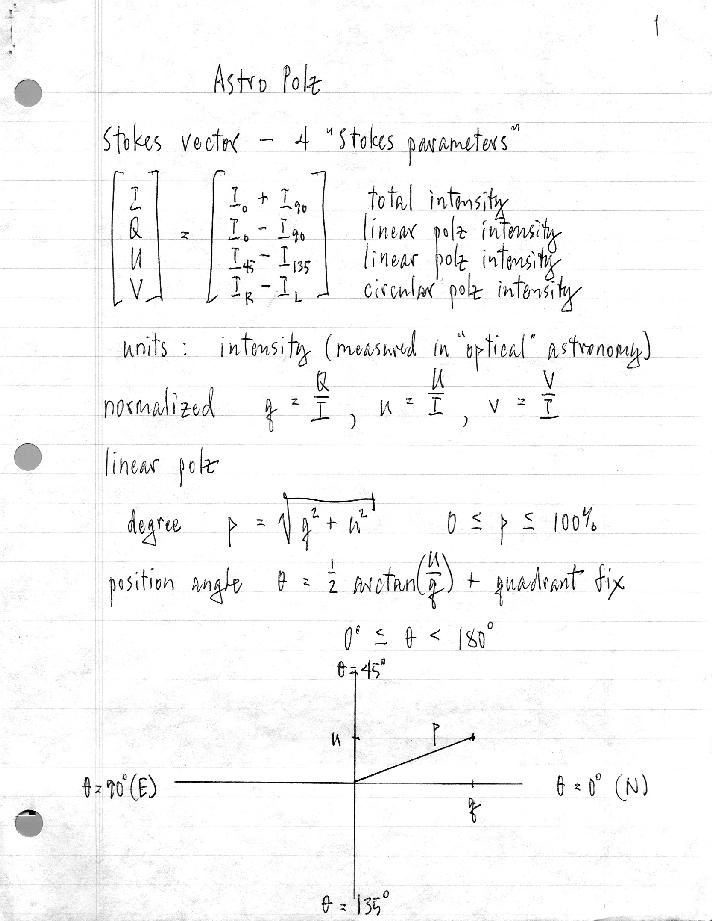 1
Astro Polz
Stokes vector - 4 "Stokes parameters"
[I] = [I₀ + I₉₀] total intensity
[Q] [I₀ - I₉₀] linear polz intensity
[U] [I₄₅ - I₁₃₅] linear polz intensity
[V] [I_R - I_L] circular polz intensity
units: intensity (measured in "optical" astronomy)
normalized q = Q/I, u = U/I, v = V/I
linear polz
degree p = √(q² + u²) 0 ≤ p ≤ 100%
position angle θ = 1/2 arctan(u/q) + quadrant fix
0° ≤ θ < 180°
θ = 45°
u p
θ = 90° (E) q θ = 0° (N)
θ = 135°